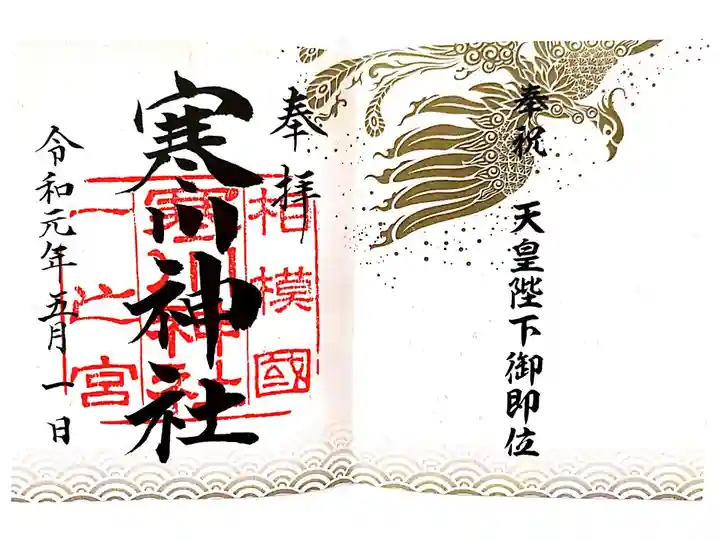 奉祝
天皇陛下御即位
奉拝
寒川神社
相模國
寒川神社
一之宮
令和元年五月一日